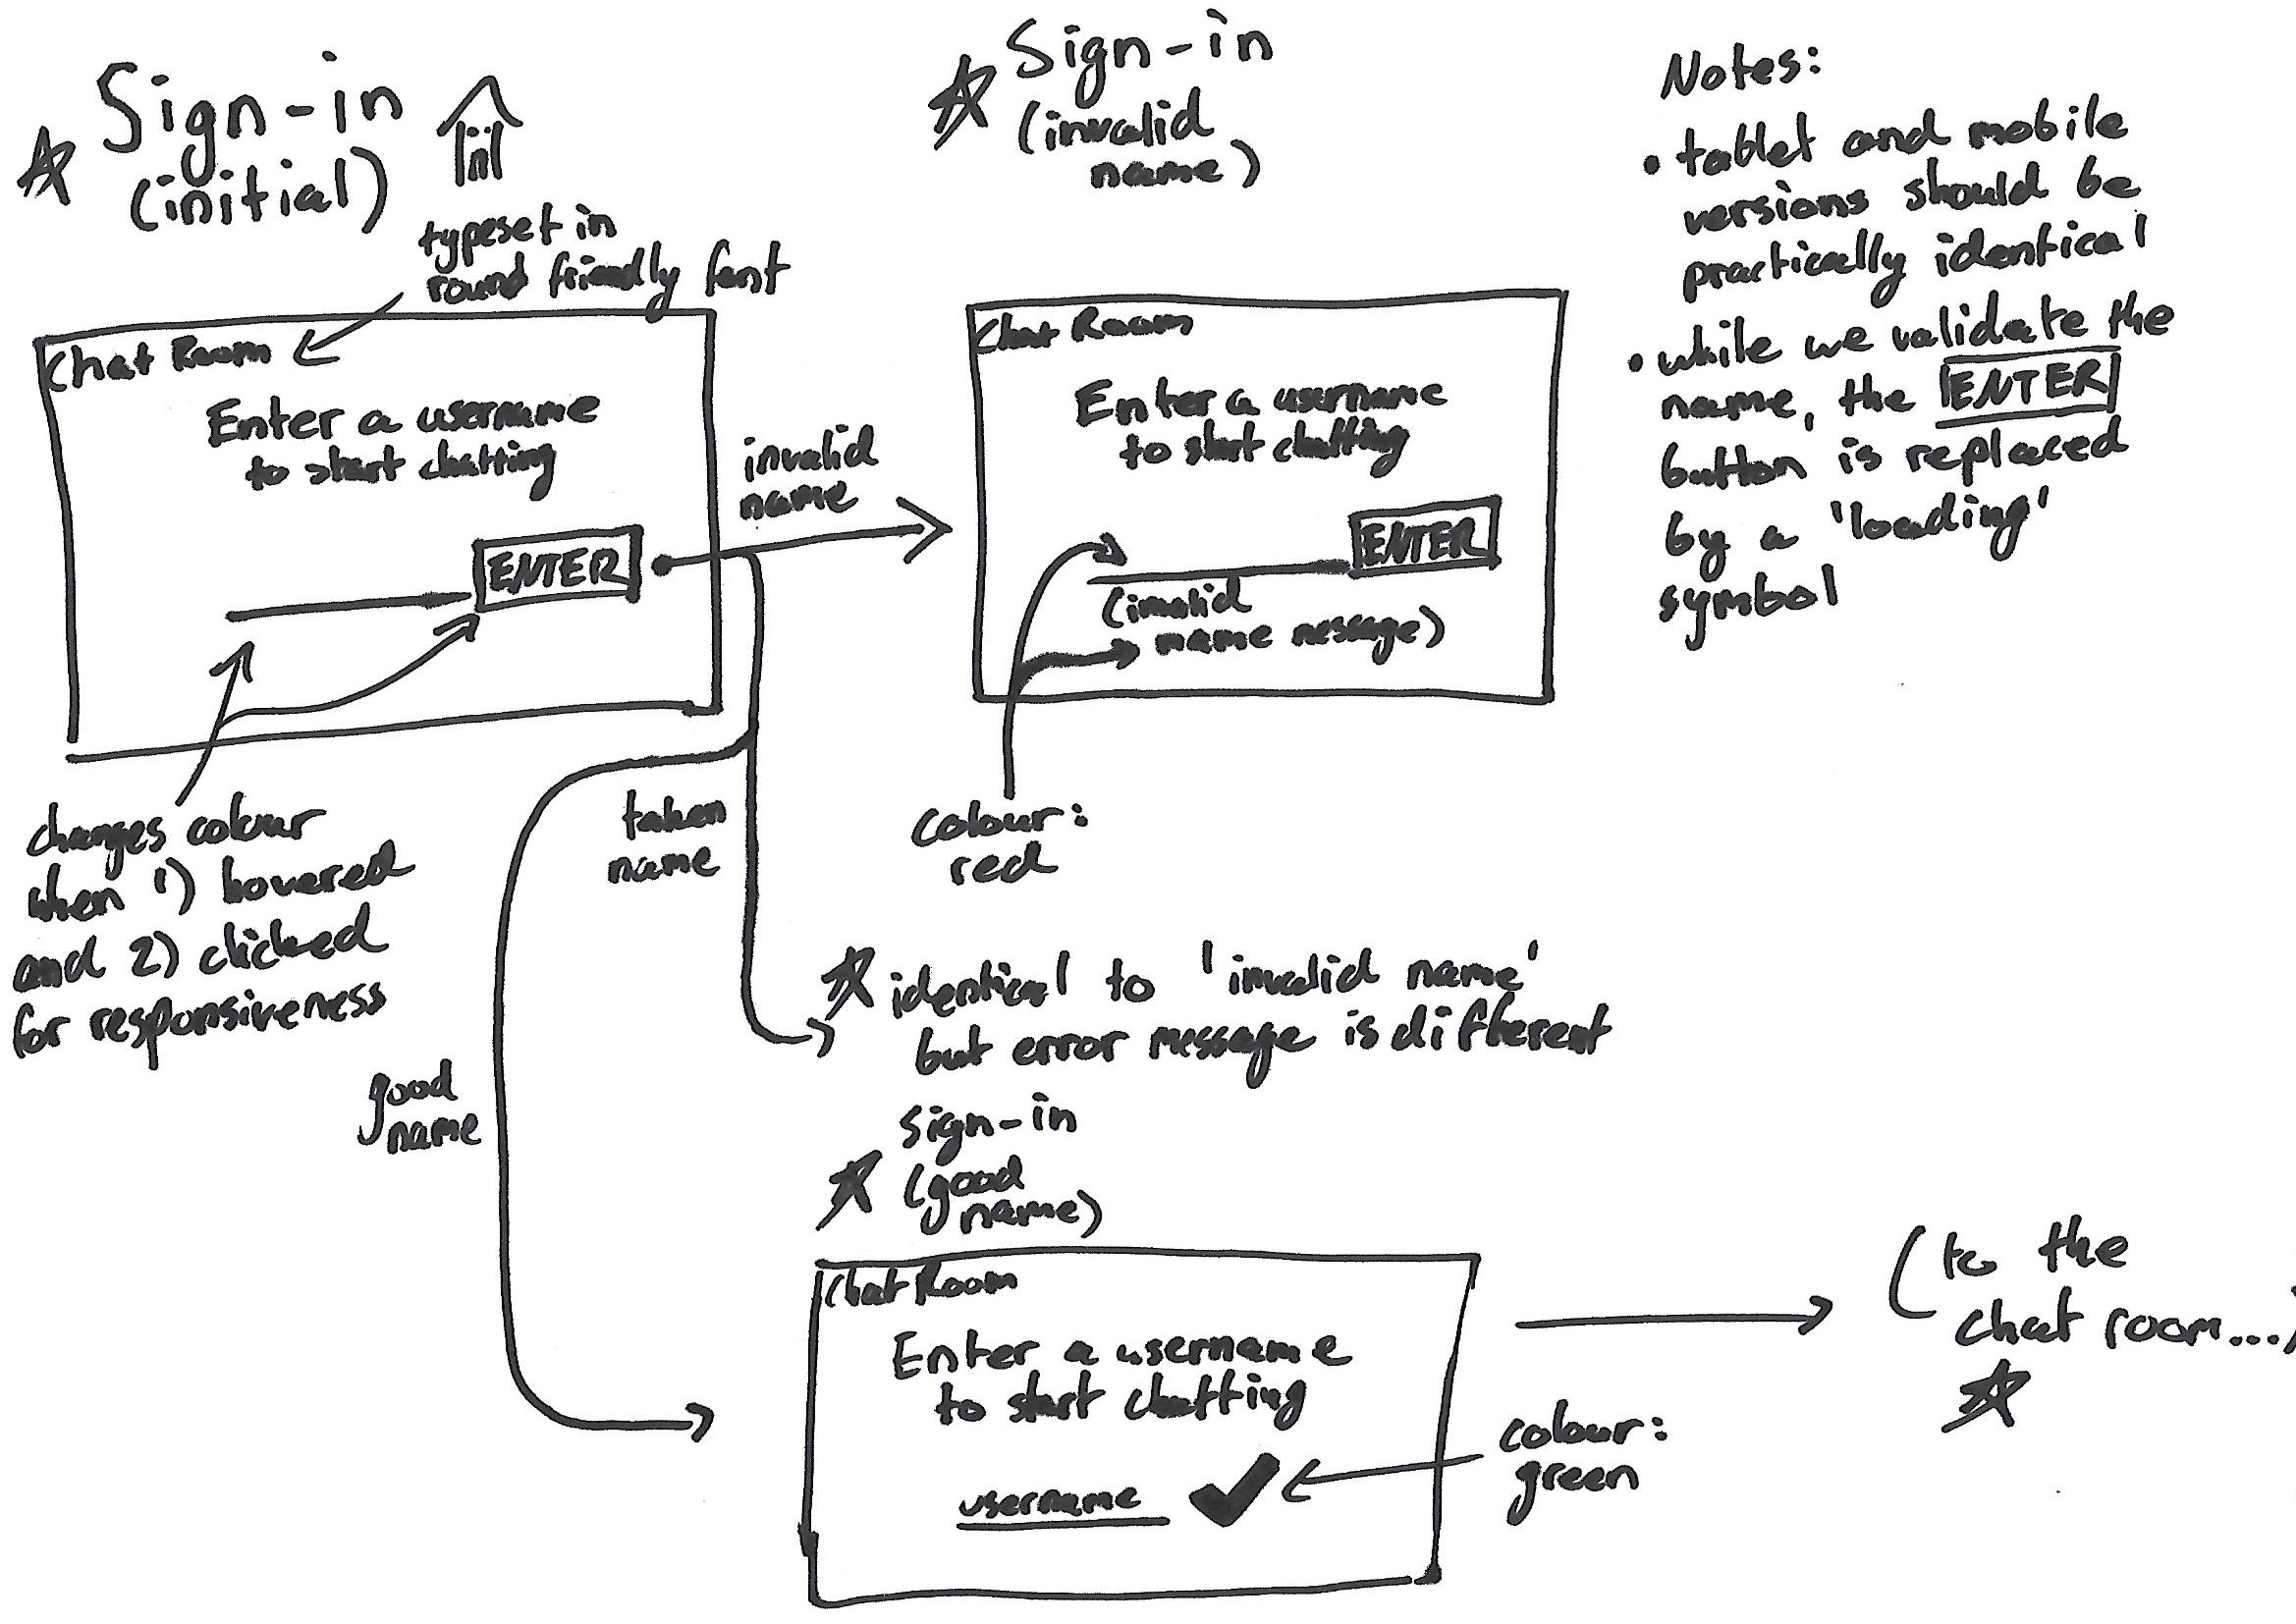 Sign-in
(initial)
typeset in
round friendly font
Chat Room
Enter a username
to start chatting
ENTER
changes colour
when 1) hovered
and 2) clicked
for responsiveness
invalid
name
taken
name
good
name
Sign-in
(invalid
name)
Chat Room
Enter a username
to start chatting
ENTER
(invalid
name message)
colour:
red
identical to 'invalid name'
but error message is different
sign-in
(good
name)
Chat Room
Enter a username
to start chatting
username
colour:
green
(to the
chat room...)
Notes:
• tablet and mobile
versions should be
practically identical
• while we validate the
name, the ENTER
button is replaced
by a 'loading'
symbol